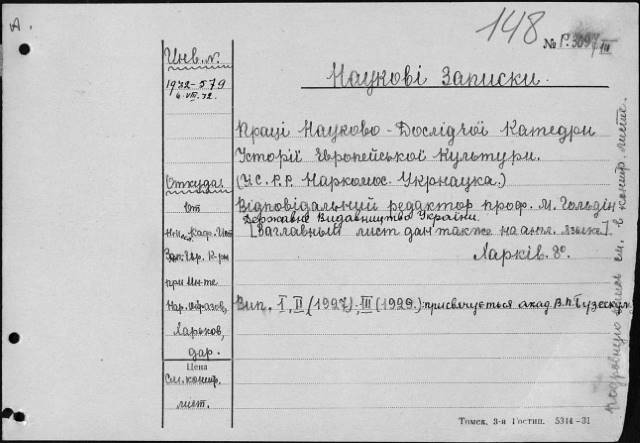 A.
148
№ Р.3097/III
Инв. №.
1932-579
4.VIII.32.
Наукові Записки.
Праці Науково-Дослідчої Катедри
Історії Європейської Культури.
(У.С.Р.Р. Наркомос. Укрнаука.)
Откуда:
от
Відповідальний редактор проф. М. Гольдін
Державне Видавництво України
[Заглавный лист дан также на англ. языке].
Харків. 8°.
Каф. Ист.
при Ин-те
Нар. образов,
Харьков,
дар.
Вип. I, II (1927); III (1929): присвячується акад. В. П. Бузескул
Цена
См. контр.
лист.
см. в контр. листе.
Томск. 3-я Гостип. 5314-31